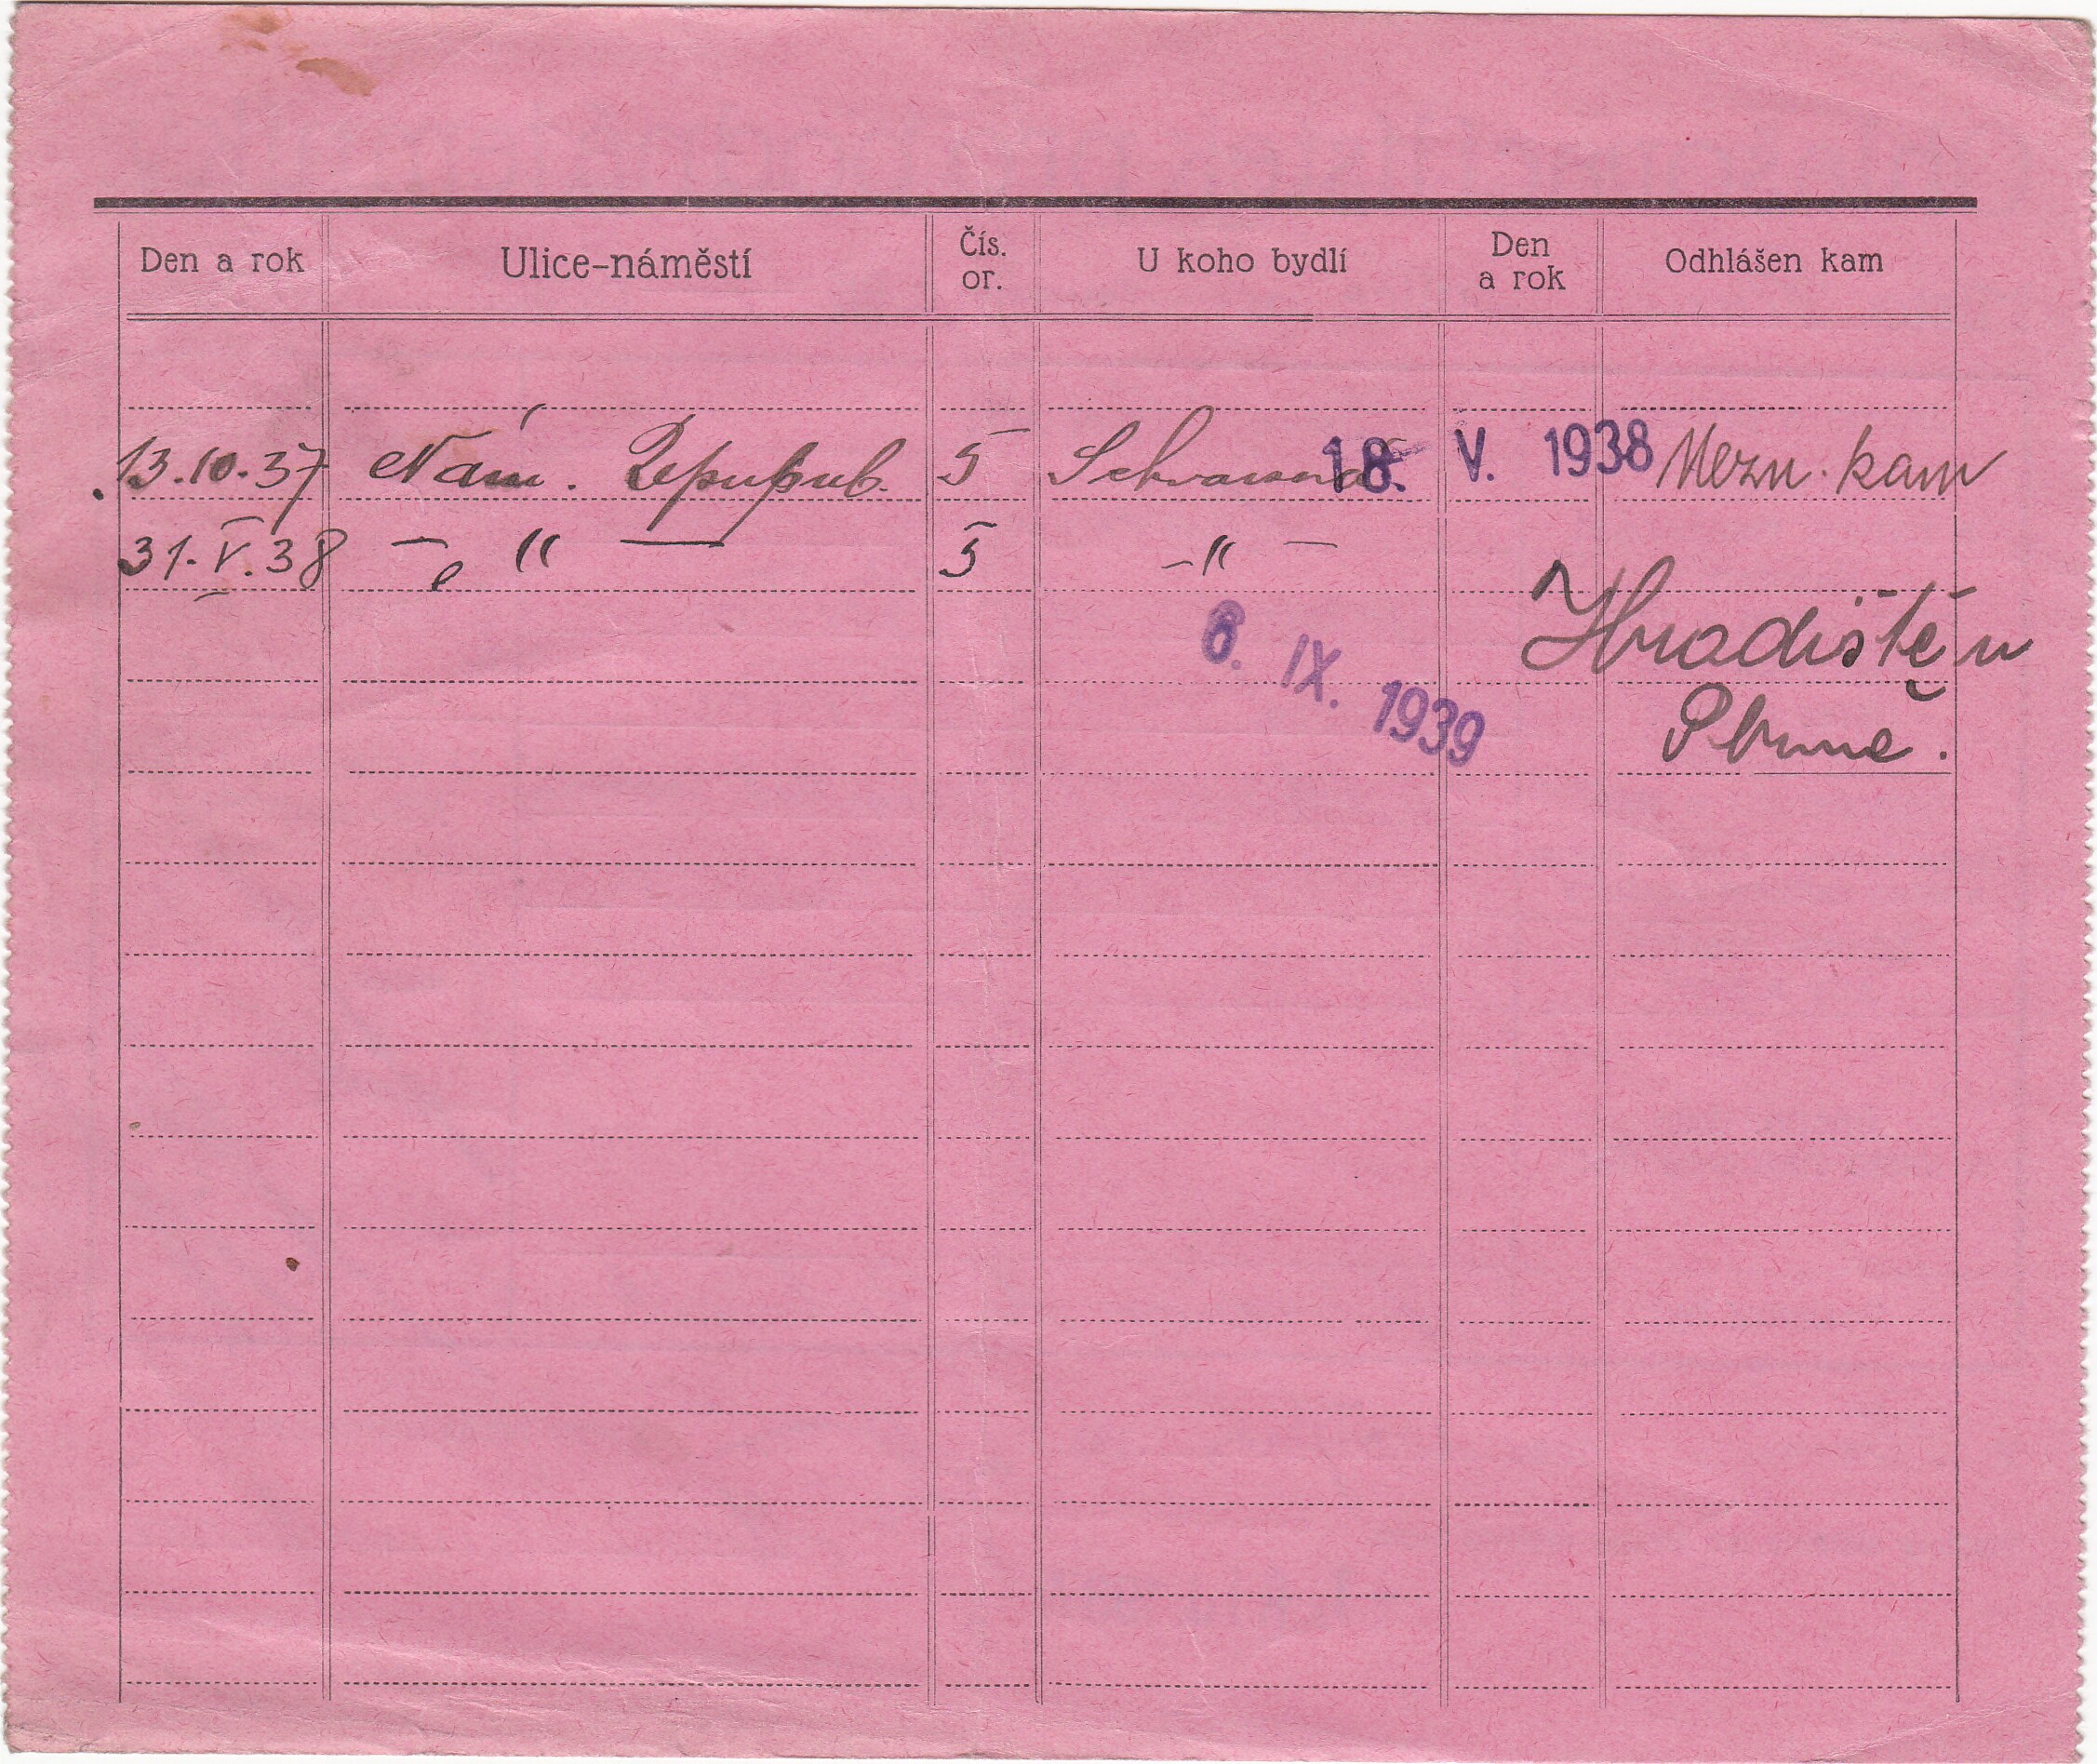 Den a rok Ulice-náměstí Čís. or. U koho bydlí Den a rok Odhlášen kam
13.10.37 Nám. Repupub. 5 18. V. 1938 Nezn. kam
31.V.38 — " — 5 — " —
Hradiště u
6. IX. 1939 Plzně.